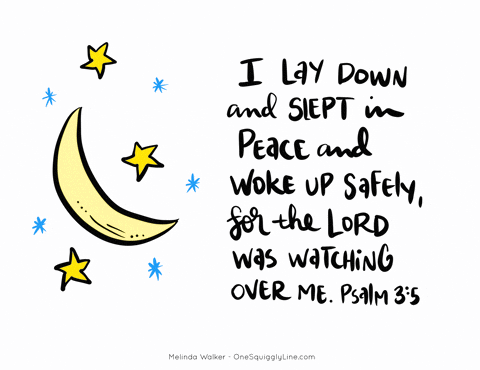 I LAY DOWN
and SLEPT in
PEACE and
WOKE UP SAFELY,
for the LORD
WAS WATCHING
OVER ME. PSALM 3:5
Melinda Walker - OneSquigglyLine.com